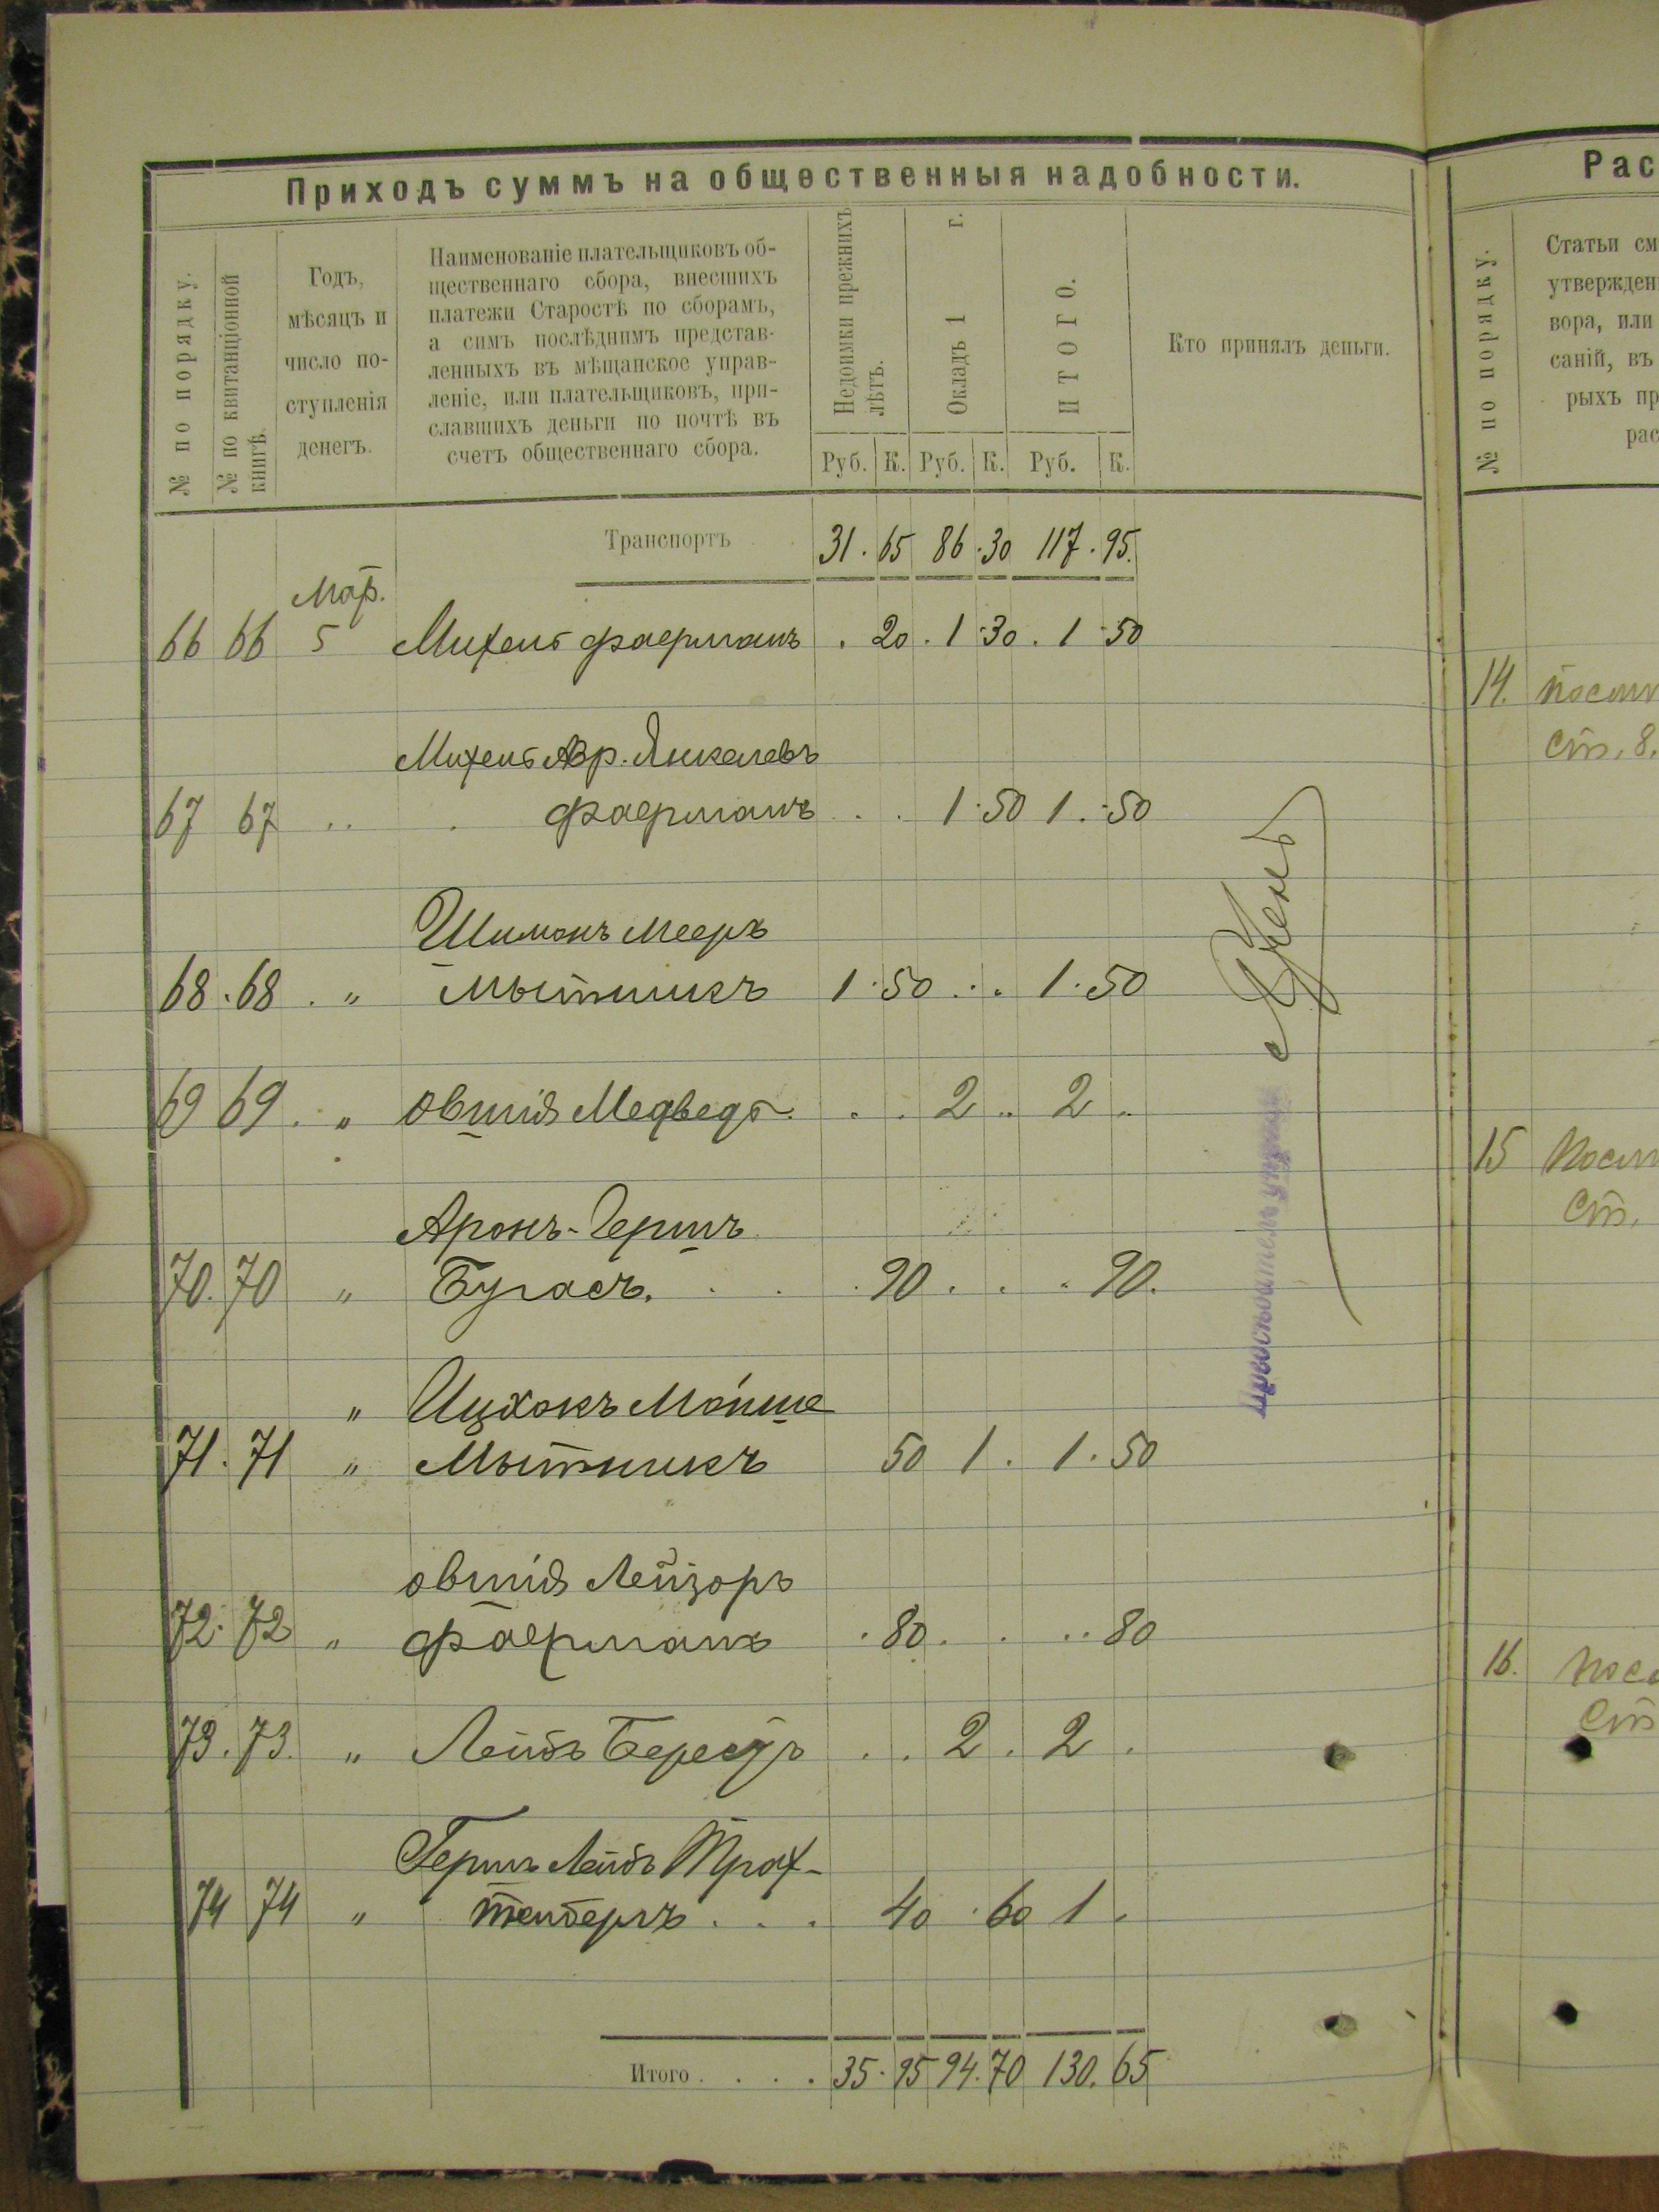 Приходъ суммъ на общественныя надобности.
№ по порядку.
№ по квитанціонной
книгѣ.
Годъ,
мѣсяцъ и
число по-
ступленія
денегъ.
Наименованіе плательщиковъ об-
щественнаго сбора, внесшихъ
платежи Старостѣ по сборамъ,
а симъ послѣднимъ представ-
ленныхъ въ мѣщанское управ-
леніе, или плательщиковъ, при-
славшихъ деньги по почтѣ въ
счетъ общественнаго сбора.
Недоимки прежнихъ
лѣтъ.
Окладъ 1 г.
ИТОГО.
Кто принялъ деньги.
Руб. К. Руб. К. Руб. К.
Транспортъ 31. 65 86. 30 117. 95.
Мар.
66 66 5 Михель Фаерманъ . 20. 1 30. 1 50
Михель Авр. Янкелевъ
67 67 .. Фаерманъ . . 1 50 1. 50
Шимонъ Мееръ
68. 68. „ Мытникъ 1. 50 . . 1. 50
69 69. „ Овшія Медведь . . 2 .. 2 ..
Аронъ-Гершъ
70. 70 „ Бугасъ. . . . 90. . . 90.
„ Ицхокъ Мойше
71. 71 „ Мытникъ 50 1. 1. 50
Овшія Лейзоръ
72. 72 „ Фаерманъ . 80. . .. 80
73. 73. „ Лейбъ . . 2. 2 .
Гершъ Лейбъ Трах-
74 74 „ тенбергъ . . . 40 . 60 1 .
Итого . . . . 35. 95 94. 70 130. 65
Рас
№ по порядку.
Статьи см
утвержден
вора, или
саній, въ
рыхъ пр
рас
14.
Ст. 8.
15
Ст.
16.
Ст